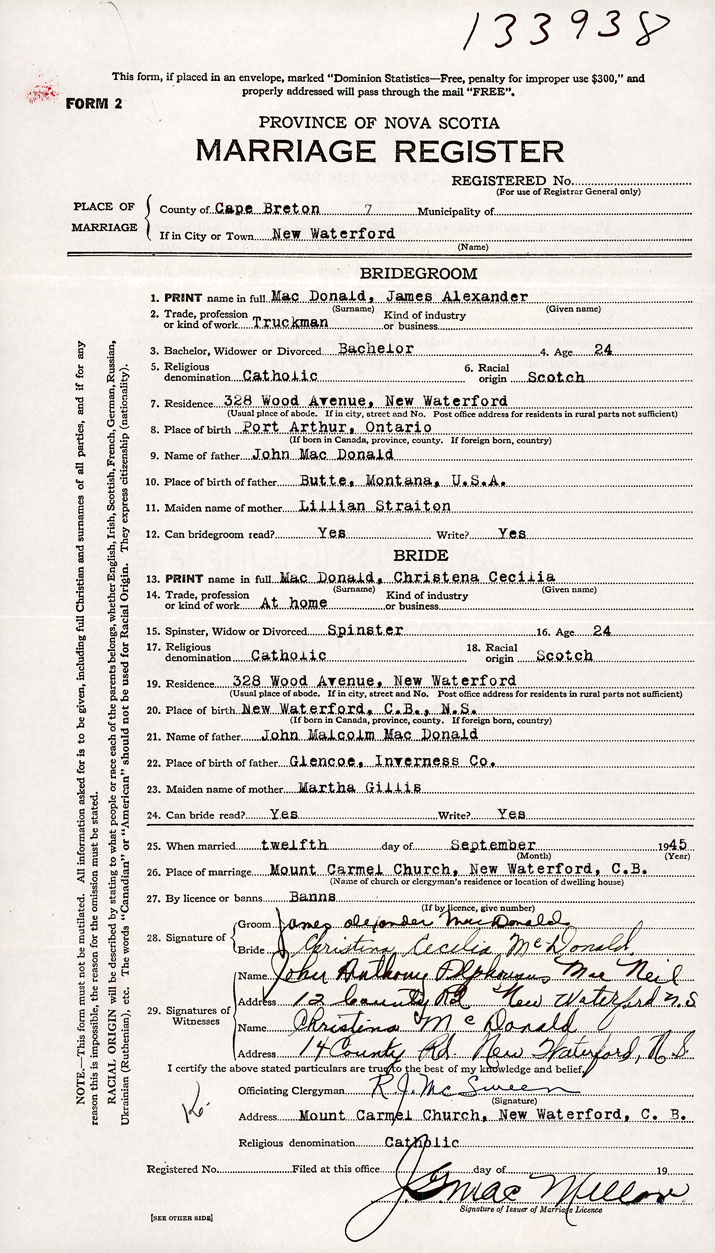 133938
This form, if placed in an envelope, marked "Dominion Statistics—Free, penalty for improper use $300," and
properly addressed will pass through the mail "FREE".
FORM 2
PROVINCE OF NOVA SCOTIA
MARRIAGE REGISTER
REGISTERED No.
(For use of Registrar General only)
PLACE OF MARRIAGE
County of Cape Breton 7 Municipality of
If in City or Town New Waterford
(Name)
BRIDEGROOM
1. PRINT name in full Mac Donald, James Alexander
(Surname) (Given name)
2. Trade, profession or kind of work Truckman Kind of industry or business
3. Bachelor, Widower or Divorced Bachelor 4. Age 24
5. Religious denomination Catholic 6. Racial origin Scotch
7. Residence 328 Wood Avenue, New Waterford
(Usual place of abode. If in city, street and No. Post office address for residents in rural parts not sufficient)
8. Place of birth Port Arthur, Ontario
(If born in Canada, province, county. If foreign born, country)
9. Name of father John Mac Donald
10. Place of birth of father Butte, Montana, U.S.A.
11. Maiden name of mother Lillian Straiton
12. Can bridegroom read? Yes Write? Yes
BRIDE
13. PRINT name in full Mac Donald, Christena Cecilia
(Surname) (Given name)
14. Trade, profession or kind of work At home Kind of industry or business
15. Spinster, Widow or Divorced Spinster 16. Age 24
17. Religious denomination Catholic 18. Racial origin Scotch
19. Residence 328 Wood Avenue, New Waterford
(Usual place of abode. If in city, street and No. Post office address for residents in rural parts not sufficient)
20. Place of birth New Waterford, C.B., N.S.
(If born in Canada, province, county. If foreign born, country)
21. Name of father John Malcolm Mac Donald
22. Place of birth of father Glencoe, Inverness Co.
23. Maiden name of mother Martha Gillis
24. Can bride read? Yes Write? Yes
25. When married twelfth day of September 1945
(Month) (Year)
26. Place of marriage Mount Carmel Church, New Waterford, C.B.
(Name of church or clergyman's residence or location of dwelling house)
27. By licence or banns Banns
(If by licence, give number)
28. Signature of
Groom James Alexander MacDonald
Bride Christina Cecilia McDonald
29. Signatures of Witnesses
Name John Anthony Alphonsus Mac Neil
Address 12 County Rd New Waterford N.S
Name Christina McDonald
Address 14 County Rd. New Waterford, N.S.
I certify the above stated particulars are true to the best of my knowledge and belief,
Officiating Clergyman R.J. McSween
(Signature)
Address Mount Carmel Church, New Waterford, C. B.
Religious denomination Catholic
Registered No. Filed at this office day of 19
J.G. MacMillan
Signature of Issuer of Marriage Licence
[SEE OTHER SIDE]
NOTE.—This form must not be mutilated. All information asked for is to be given, including full Christian and surnames of all parties, and if for any
reason this is impossible, the reason for the omission must be stated.
RACIAL ORIGIN will be described by stating to what people or race each of the parents belongs, whether English, Irish, Scottish, French, German, Russian,
Ukrainian (Ruthenian), etc. The words "Canadian" or "American" should not be used for Racial Origin. They express citizenship (nationality).